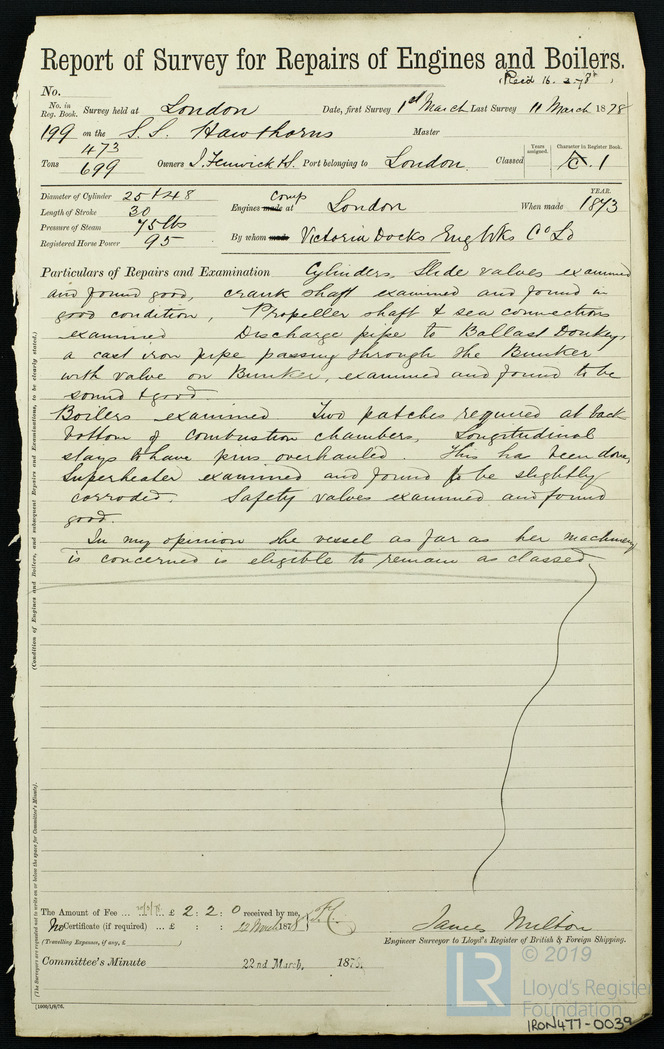 Report of Survey for Repairs of Engines and Boilers.
(Rec'd 16. 3. 78)
No.
No. in Reg. Book. Survey held at London Date, first Survey 1st March Last Survey 11 March 1878
199 on the S.S. Hawthorns Master
Tons 473 699 Owners J. Fenwick & S. Port belonging to London Classed Years assigned. Character in Register Book. C. 1
Diameter of Cylinder 25 + 48
Length of Stroke 30
Pressure of Steam 75 lbs
Registered Horse Power 95
Engines made comp at London When made YEAR. 1873
By whom made Victoria Docks Eng Wks Co Ld
Particulars of Repairs and Examination Cylinders, Slide valves examined
and found good, crank shaft examined and found in
good condition, Propeller shaft & sea connections
examined Discharge pipe to Ballast Donkey,
a cast iron pipe passing through the Bunker
with valve on Bunker, examined and found to be
sound & good.
Boilers examined Two patches required at back
bottom of combustion chambers, Longitudinal
stays to have pins overhauled. This has been done,
Superheater examined and found to be slightly
corroded. Safety valves examined and found
good.
In my opinion the vessel as far as her machinery
is concerned is eligible to remain as classed
(Condition of Engines and Boilers, and subsequent Repairs and Examinations, to be clearly stated.)
(The Surveyors are requested not to write on or below the space for Committee's Minute).
The Amount of Fee ... £ 2 : 2 : 0 received by me,
No Certificate (if required) ... £ : : 22 March 1878
(Travelling Expenses, if any, £ )
James Milton
Engineer Surveyor to Lloyd's Register of British & Foreign Shipping.
Committee's Minute 22nd March, 1878.
[1000/5/9/76.
© 2019
LR
Lloyd's Register
Foundation
IRON477-0039